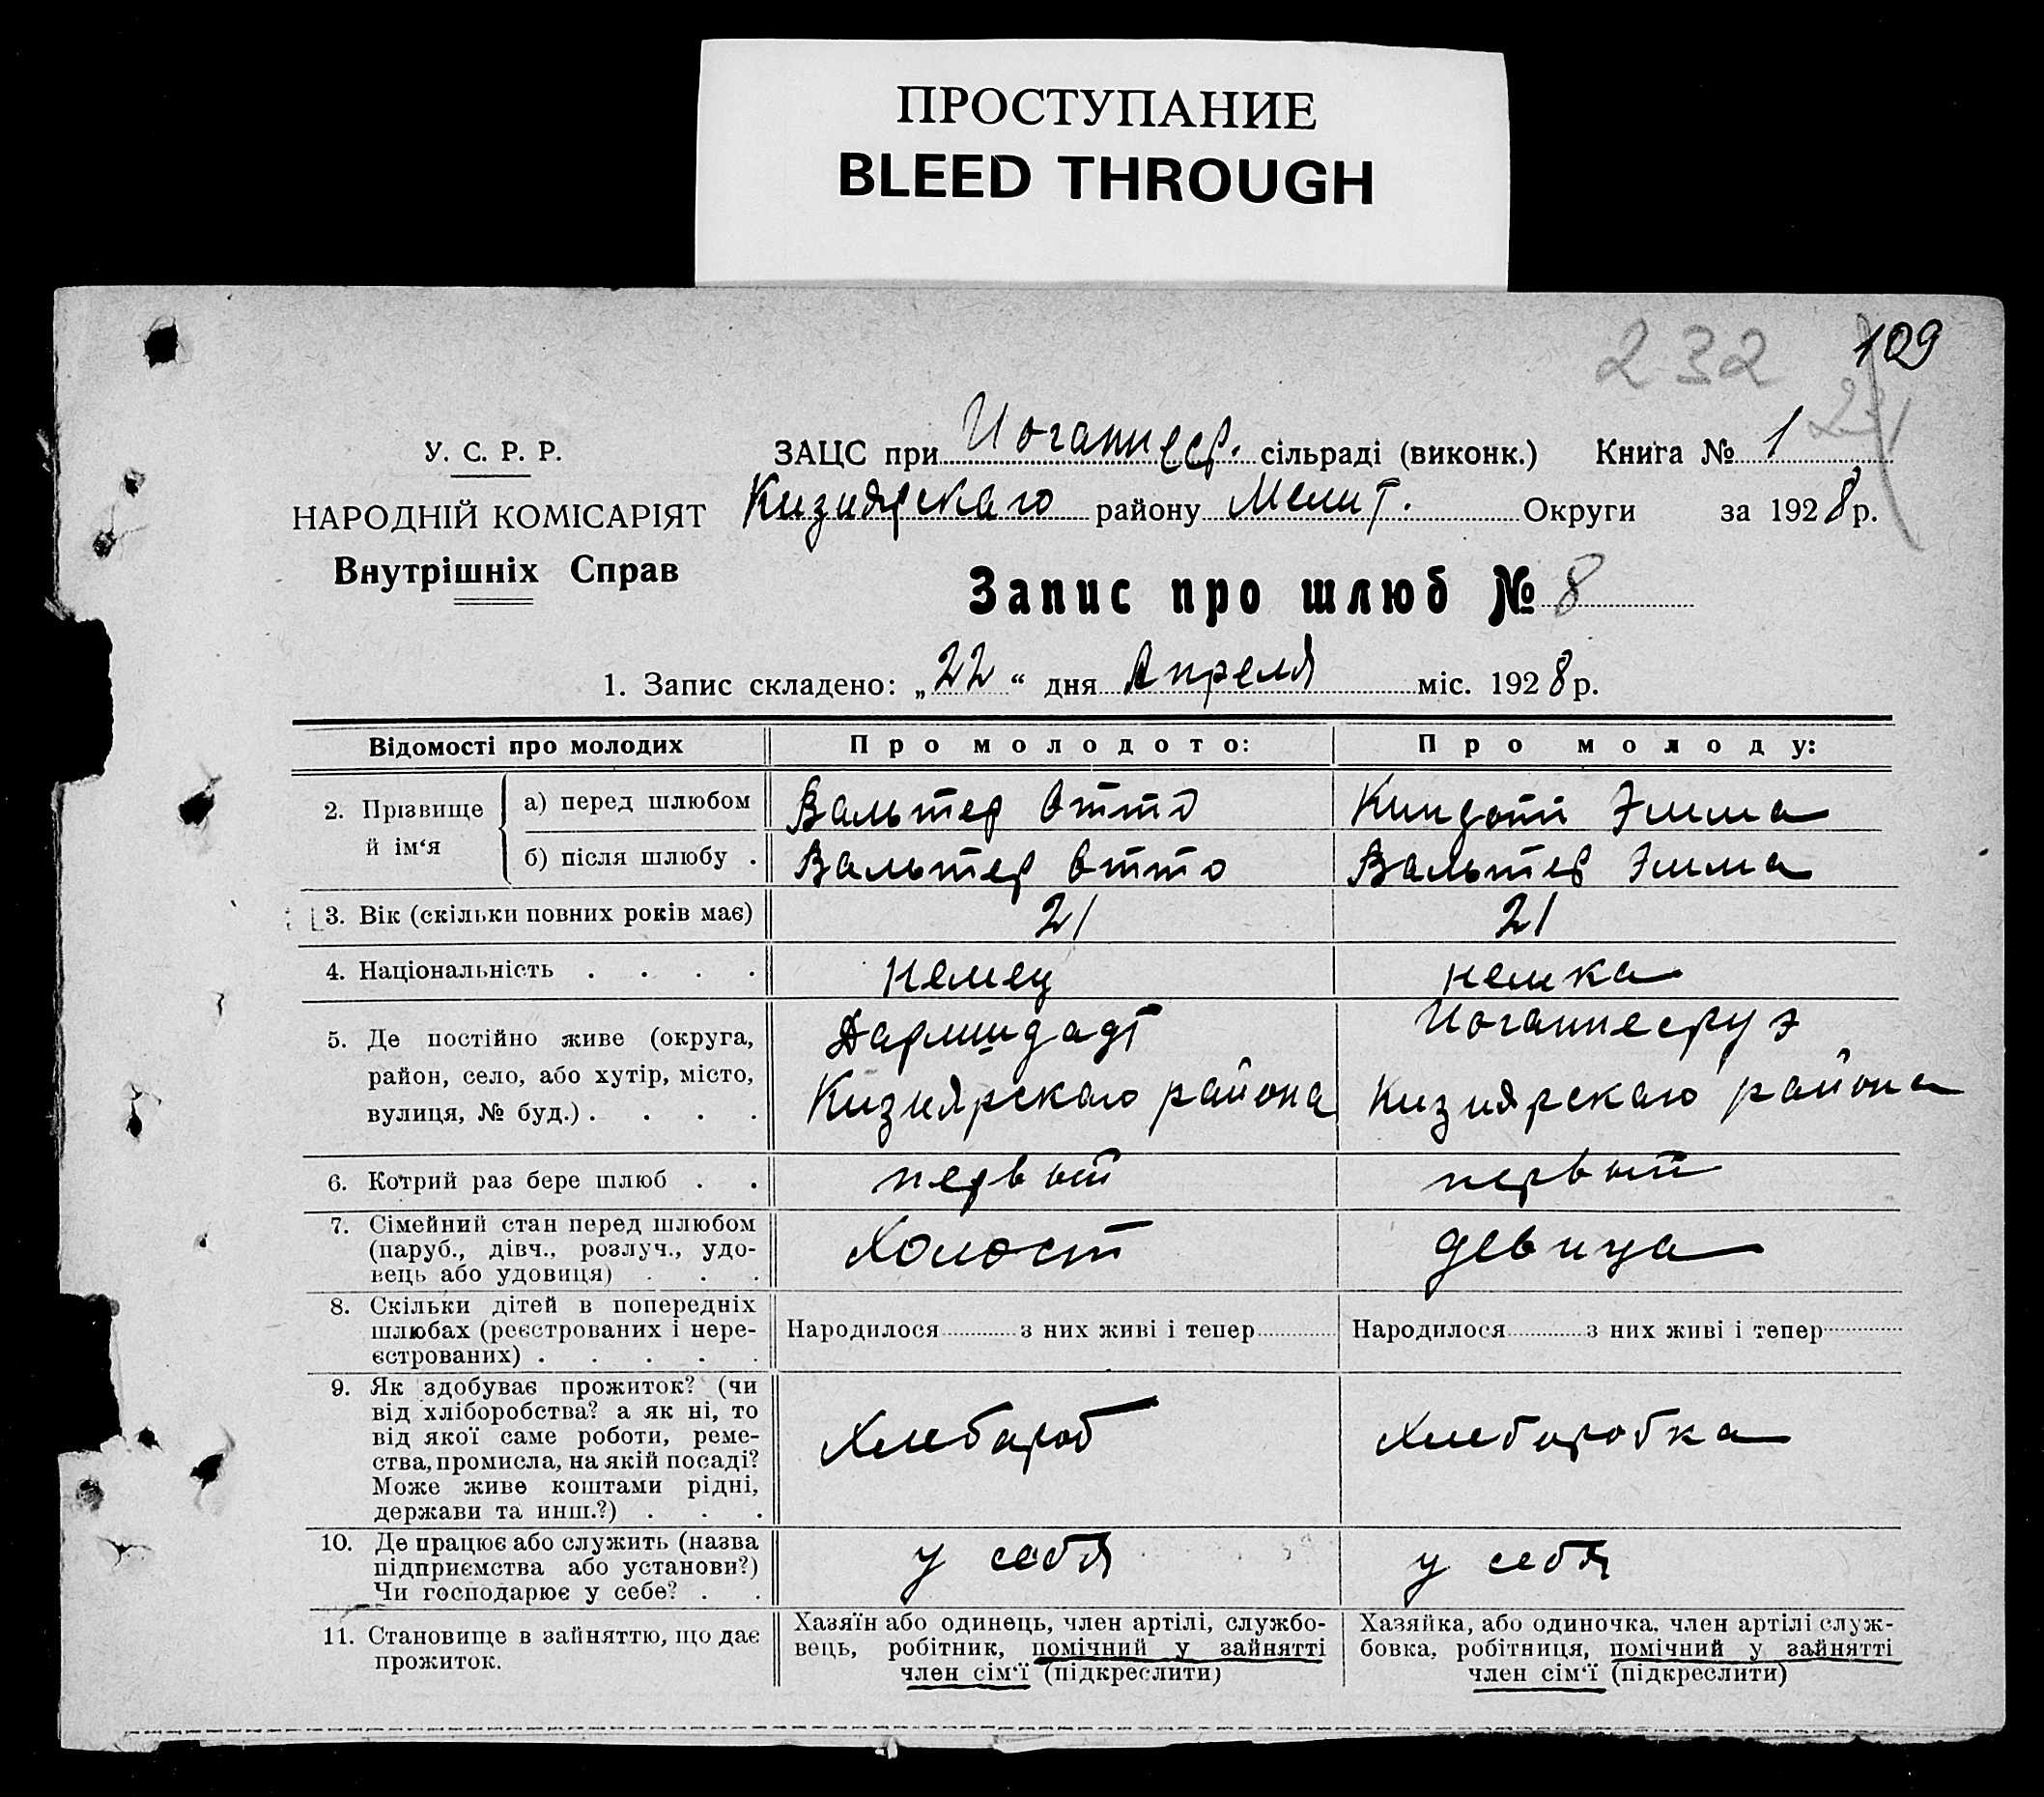 ПРОСТУПАНИЕ
BLEED THROUGH
232 109
231
У. С. Р. Р.
НАРОДНІЙ КОМІСАРІЯТ
Внутрішніх Справ
ЗАЦС при Иоганнеср. сільраді (виконк.) Книга № 1
Кизиярскаго району Мелит. Округи за 1928 р.
Запис про шлюб № 8
1. Запис складено: „22“ дня Апреля міс. 1928 р.
Відомості про молодих Про молодого: Про молоду:
2. Прізвище й ім‘я
а) перед шлюбом Вальтер Отто Киндоти Эмма
б) після шлюбу . Вальтер Отто Вальтер Эмма
3. Вік (скільки повних років має) 21 21
4. Національність . . . . немец немка
5. Де постійно живе (округа, Дармшдадт Иоганнесруэ
район, село, або хутір, місто, Кизиярскаго района Кизиярскаго района
вулиця, № буд.) . . . .
6. Котрий раз бере шлюб . . первый первый
7. Сімейний стан перед шлюбом
(паруб., дівч., розлуч., удо- Холост девица
вець або удовиця) . . .
8. Скільки дітей в попередніх
шлюбах (реєстрованих і нере- Народилося з них живі і тепер Народилося з них живі і тепер
єстрованих) . . . . .
9. Як здобуває прожиток? (чи
від хліборобства? а як ні, то
від якої саме роботи, реме- Хлебароб Хлеборобка
ства, промисла, на якій посаді?
Може живе коштами рідні,
держави та инш.?) . . .
10. Де працює або служить (назва у себя у себя
підприємства або установи?)
Чи господарює у себе? . .
11. Становище в зайняттю, що дає
прожиток.
Хазяїн або одинець, член артілі, службо-
вець, робітник, помічний у зайнятті
член сім‘ї (підкреслити)
Хазяйка, або одиночка, член артілі служ-
бовка, робітниця, помічний у зайнятті
член сім‘ї (підкреслити)